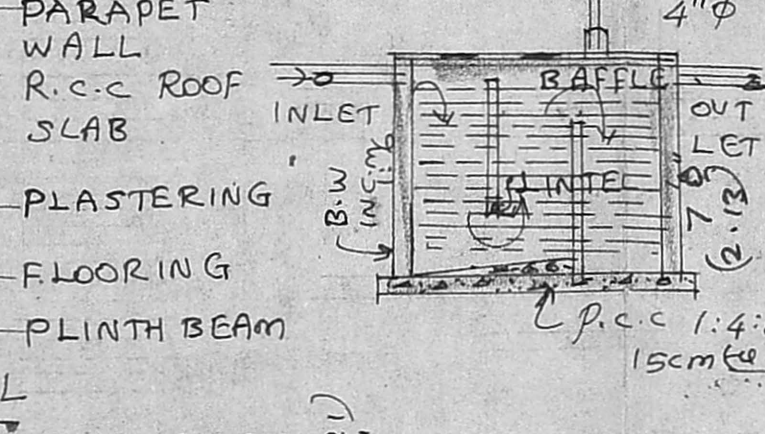 PARAPET
WALL
R.C.C ROOF
SLAB
PLASTERING
FLOORING
PLINTH BEAM
L
4"φ
INLET
BAFFLE
OUT
LET
B.W
IN C.M
R.LINTEL
7'
(2.13)
P.C.C 1:4:
15cm